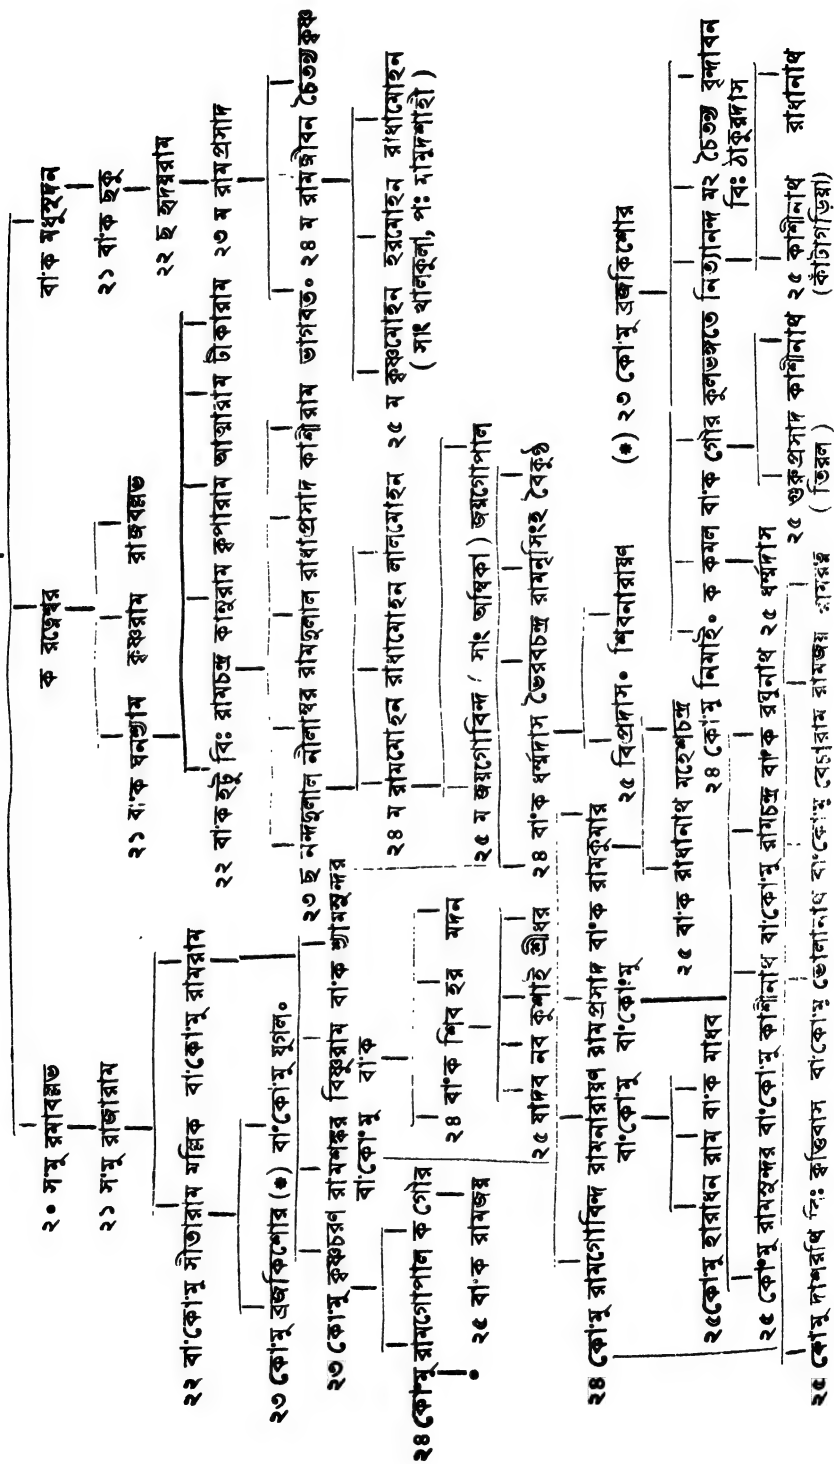 ২০ স'মু রমাবল্লভ ক রত্নেশ্বর বা'ক মধুসূদন
২১ স'মু রাজারাম ২১ বা'ক ঘনশ্যাম কৃষ্ণরাম রাজবল্লভ ২১ বা'ক ছকু
২২ ছ হৃদয়রাম
২২ বা'কো'মু সীতারাম মল্লিক বা'কো'মু রামরাম ২২ বা'ক হটু বিঃ রামচন্দ্র কানুরাম কৃপারাম আত্মারাম টীকারাম ২৩ ম রামপ্রসাদ
২৩ কো'মু ব্রজকিশোর (*) বা'কো'মু যুগল०
২৩ ছ নন্দদুলাল নীলাম্বর রামদুলাল রাধাপ্রসাদ কাশীরাম ভাগবত० ২৪ ম রামজীবন চৈতন্যকৃষ্ণ
২৩ কো'মু কৃষ্ণচরণ রামশঙ্কর বিষ্ণুরাম বা'ক শ্যামসুন্দর
বা'কো'মু বা'ক
২৪ ম রামমোহন রাধামোহন লালমোহন ২৫ ম কৃষ্ণমোহন হরমোহন রাধামোহন
( সাং থালকুলা, পঃ মামুদশাহী )
২৪ কো'মু রামগোপাল ক গৌর ২৪ বা'ক শিব হর মদন
২৫ ম জয়গোবিন্দ ( সাং অম্বিকা ) জয়গোপাল
২৫ বা'ক রামজয়
২৫ যাদব নব কুশাই শ্রীধর ২৪ বা'ক ধর্ম্মদাস ভৈরবচন্দ্র রামনৃসিংহ বৈকুণ্ঠ
২৪ কো'মু রামগোবিন্দ রামনারায়ণ রামপ্রসাদ বা'ক রামকুমার
বা'কো'মু বা'কো'মু
২৫ বিপ্রদাস० শিবনারায়ণ (*) ২৩ কো'মু ব্রজকিশোর
২৫ বা'ক রাধানাথ মহেশচন্দ্র
২৫কো'মু হারাধন রাম বা'ক মাধব ২৪ কো'মু নিমাই० ক কমল বা'ক গৌর কুলভঙ্গতে নিত্যানন্দ ম২ চৈতন্য বৃন্দাবন
বিঃ ঠাকুরদাস
২৫ কো'মু রামসুন্দর বা'কো'মু কাশীনাথ বা'কো'মু রামচন্দ্র বা'ক রঘুনাথ ২৫ ধর্ম্মদাস
২৫ গুরুপ্রসাদ কাশীনাথ ২৫ কাশীনাথ রাধানাথ
( তিরল ) (কাঁটাগড়িয়া)
২৫ কো'মু দাশরথি বিঃ কৃত্তিবাস বা'কো'মু ভোলানাথ বা'কো'মু বেচারাম রামজয় রামরত্ন